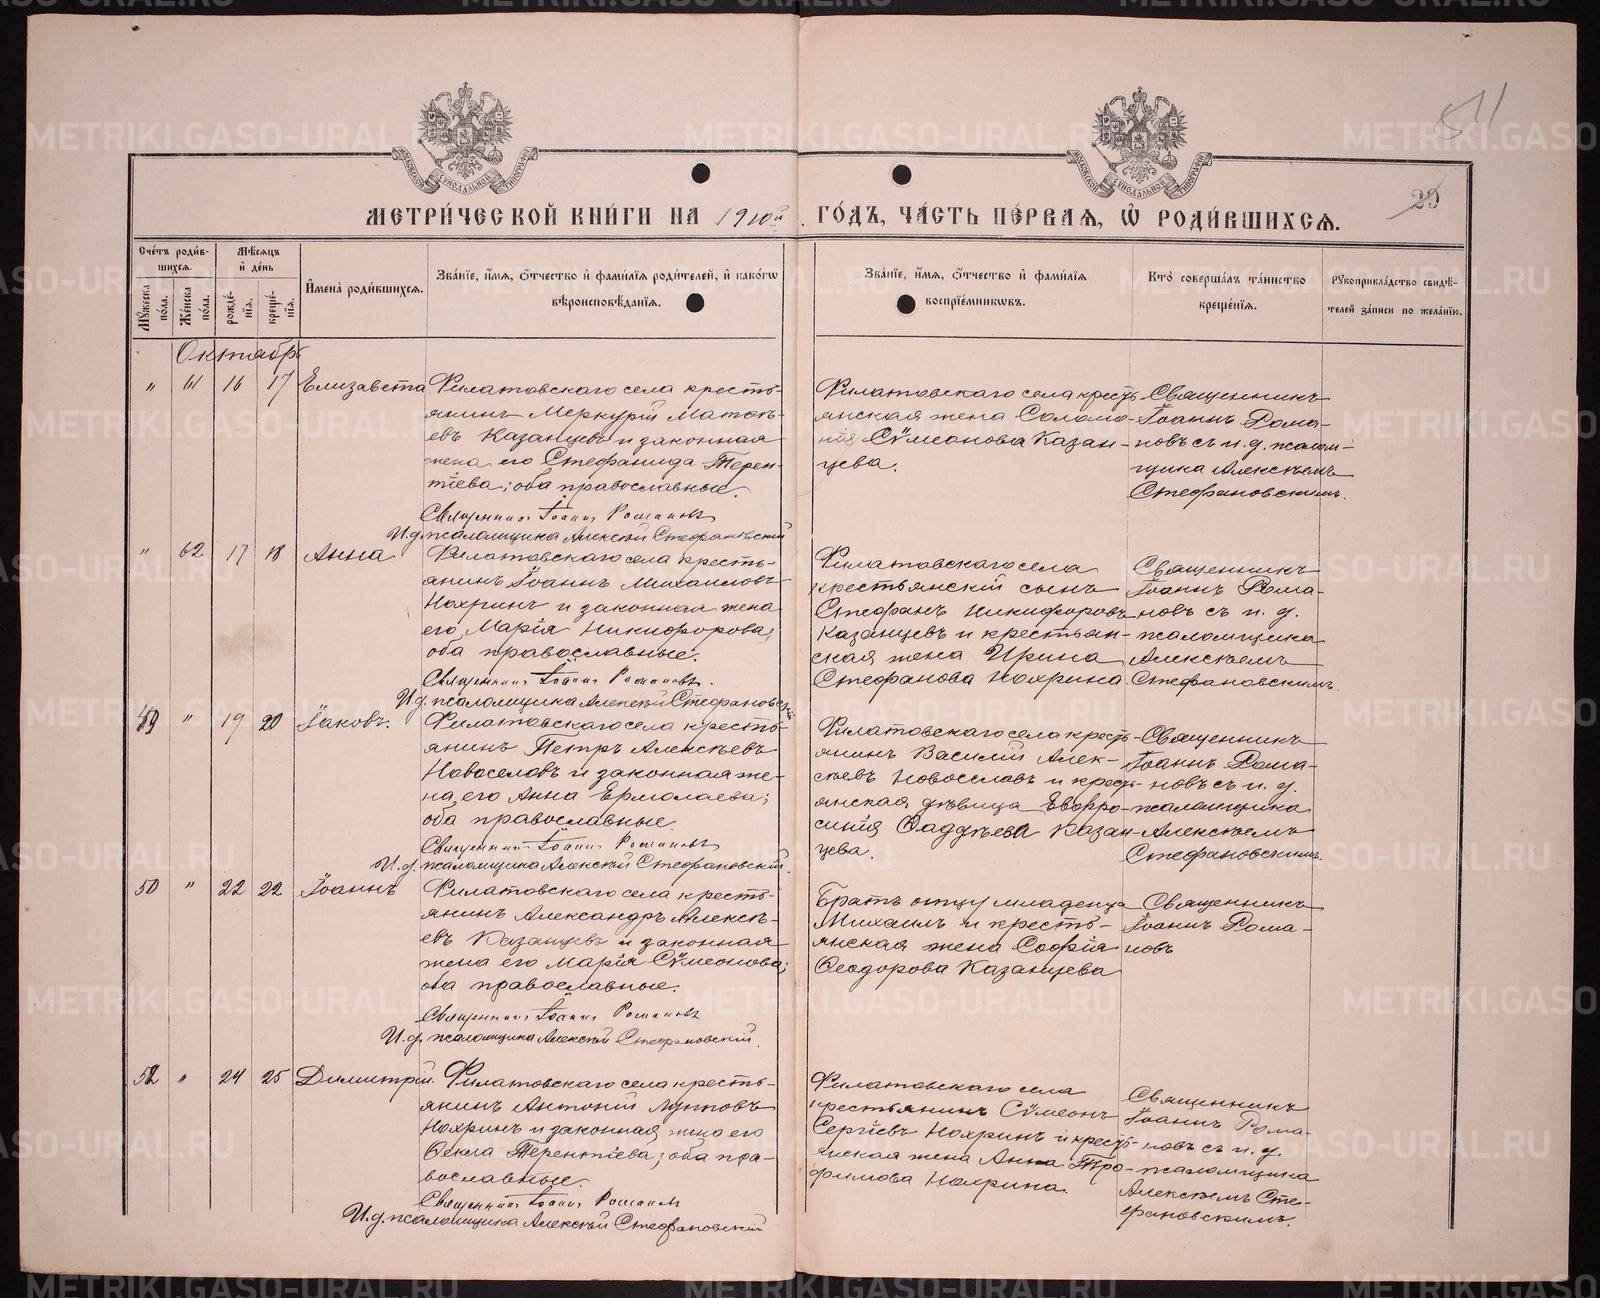 541
25
МОСКОВСКОЙ СѴНОДАЛЬНОЙ ТИПОГРАФІИ
МОСКОВСКОЙ СѴНОДАЛЬНОЙ ТИПОГРАФІИ
МЕТРИ́ЧЕСКОЙ КНИ́ГИ НА 1910й ГО́ДЪ, ЧА́СТЬ ПЕ́РВАѦ, Ѡ РОДИ́ВШИХСѦ.
Сче́тъ роди́вшихсѧ.
Мꙋ́жеска по́ла.
Же́нска по́ла.
Мѣ́сѧцъ и҆ де́нь
рожде́нїѧ.
креще́нїѧ.
И҆мена̀ роди́вшихсѧ.
Зва́нїе, и҆́мѧ, ѻ҆́тчество и҆ фами́лїѧ роди́телей, и҆ како́гѡ
вѣроисповѣ́данїѧ.
Зва́нїе, и҆́мѧ, ѻ҆́тчество и҆ фами́лїѧ
воспрїе́мникѡвъ.
Кто̀ соверша́лъ та́инство
креще́нїѧ.
Рꙋкоприкла́дство свидѣ́-
телей за́писи по жела́нїю.
Октябрь
" 61 16 17 Елизавета
Филатовскаго села кресть-
янинъ Меркурій Матѳѣ-
евъ Казанцевъ и законная
жена его Стефанида Терен-
тіева; оба православные.
Священникъ Іоаннъ Романовъ
И.д. псаломщика Алексѣй Стефановскій
Филатовскаго села кресть-
янская жена Соломо-
нія Сѵмеонова Казан-
цева.
Священникъ
Іоаннъ Рома-
новъ съ и. д. псалом-
щика Алексѣемъ
Стефановскимъ.
" 62 17 18 Анна
Филатовскаго села кресть-
янинъ Іоаннъ Михаиловъ
Нохринъ и законная жена
его, Марія Никифорова;
оба православные.
Священникъ Іоаннъ Романовъ.
И.д. псаломщика Алексѣй Стефановскій
Филатовскаго села
крестьянскій сынъ
Стефанъ Никифоровъ
Казанцевъ и крестьян-
ская жена Ирина
Стефанова Нохрина
Священникъ
Іоаннъ Рома-
новъ съ и. д.
псаломщика
Алексѣемъ
Стефановскимъ.
49 " 19 20 Іаковъ.
Филатовскаго села кресть-
янинъ Петръ Алексѣевъ
Новоселовъ и законная же-
на его Анна Ермолаева;
оба православные.
Священникъ Іоаннъ Романовъ
И.д. псаломщика Алексѣй Стефановскій.
Филатовскаго села кресть-
янинъ Василій Алек-
сѣевъ Новоселовъ и кресть-
янская дѣвица Евфро-
синія Ѳаддѣева Казан-
цева.
Священникъ
Іоаннъ Рома-
новъ съ и. д.
псаломщика
Алексѣемъ
Стефановскимъ.
50 " 22 22 Іоаннъ
Филатовскаго села кресть-
янинъ Александръ Алексѣ-
евъ Казанцевъ и законная
жена его Марія Сѵмеонова;
оба православные.
Священникъ Іоаннъ Романовъ
И.д. псаломщика Алексѣй Стефановскій.
Братъ отцу младенца
Михаилъ и кресть-
янская жена Софія
Ѳеодорова Казанцева
Священникъ
Іоаннъ Рома-
новъ
" 24 25 Димитрій.
Филатовскаго села кресть-
янинъ Антоній Лупповъ
Нохринъ и законная жена его
Ѳекла Терентіева; оба пра-
вославные.
Священникъ Іоаннъ Романовъ
И.д. псаломщика Алексѣй Стефановскій
Филатовскаго села
крестьянинъ Сѵмеонъ
Сергіевъ Нохринъ и кресть-
янская жена Анна Тро-
фимова Нохрина.
Священникъ
Іоаннъ Рома-
новъ съ и. д.
псаломщика
Алексѣемъ Сте-
фановскимъ.
METRIKI.GASO-URAL.RU